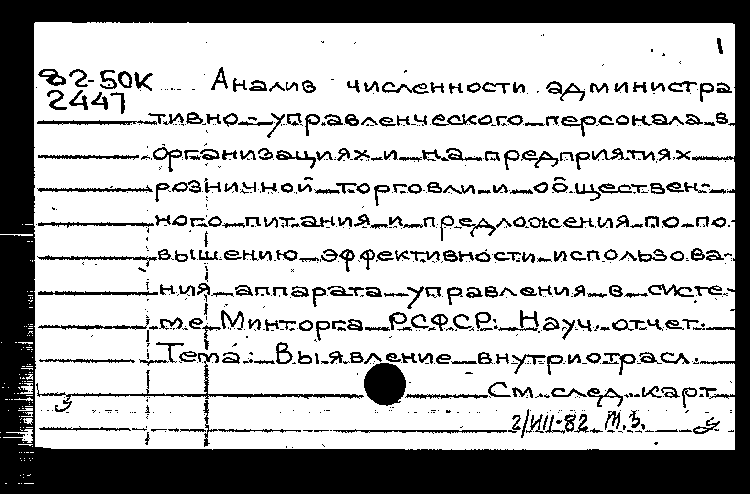 1
82-50К Анализ численности администра
2447
тивно-управленческого персонала в
организациях и на предприятиях
розничной торговли и обществен-
ного питания и предложения по по-
вышению эффективности использова-
ния аппарата управления в систе-
ме Минторга РСФСР: Науч. отчет.
Тема: Выявление внутриотрасл.
См. след. карт.
2/VIII-82 М.З.